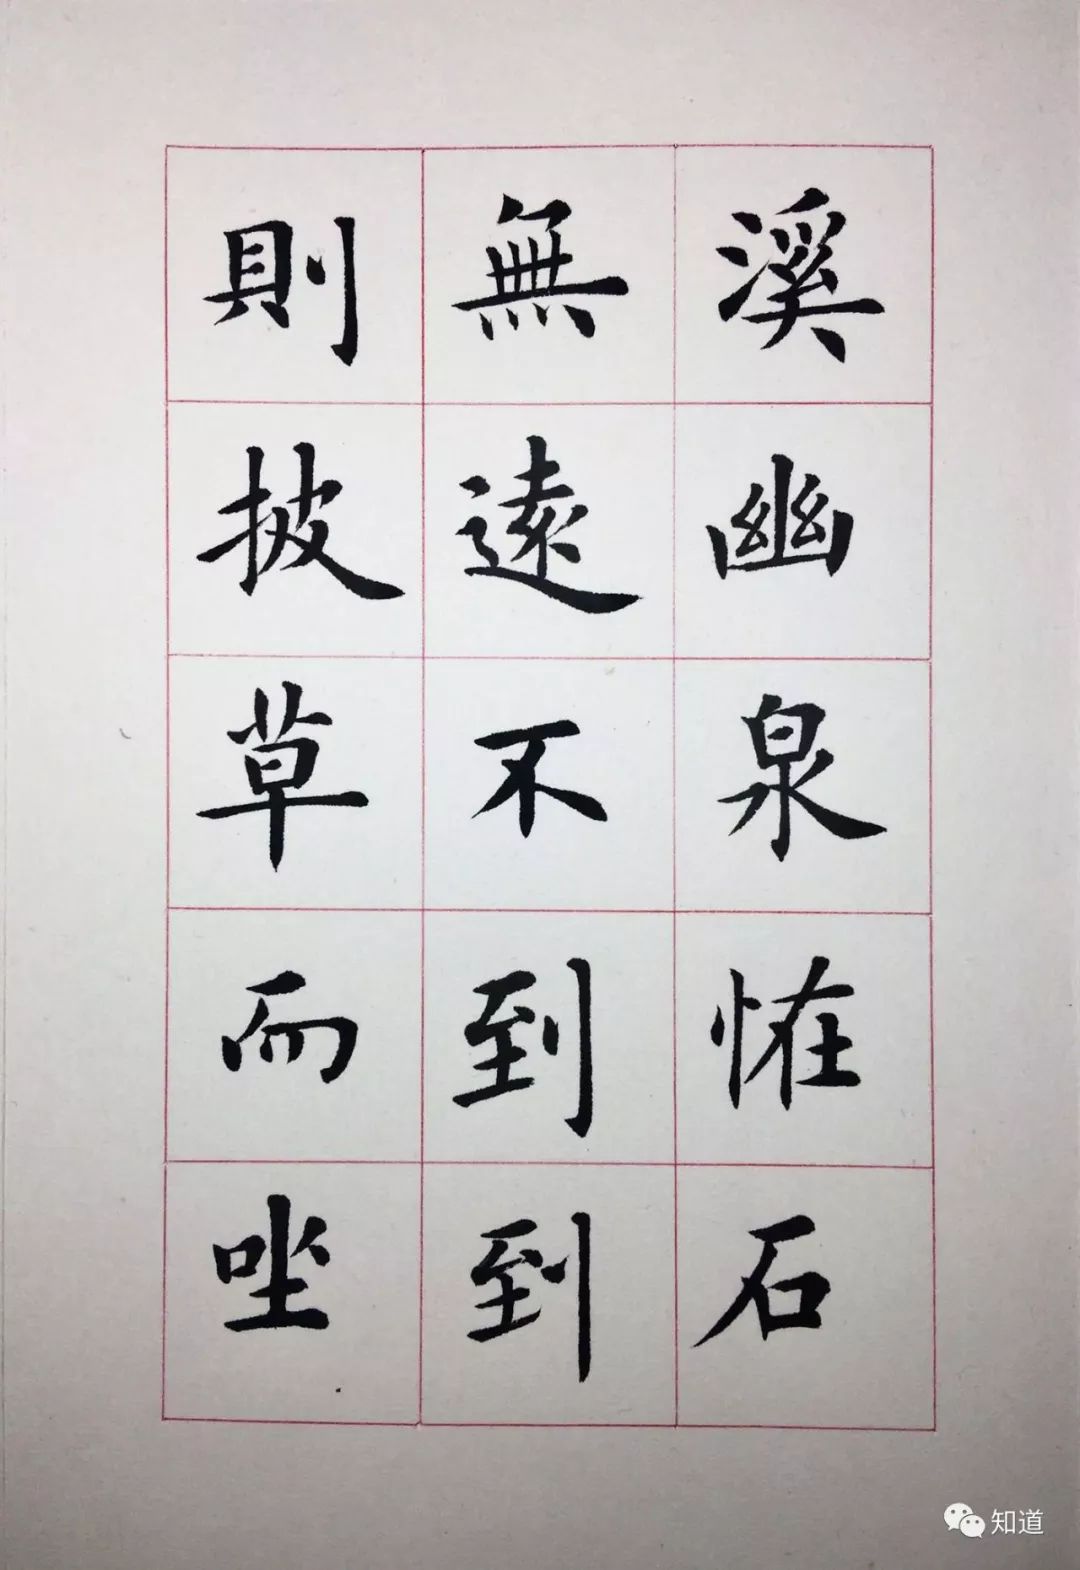 溪幽泉恠石
無遠不到到
則披草而坐
知道